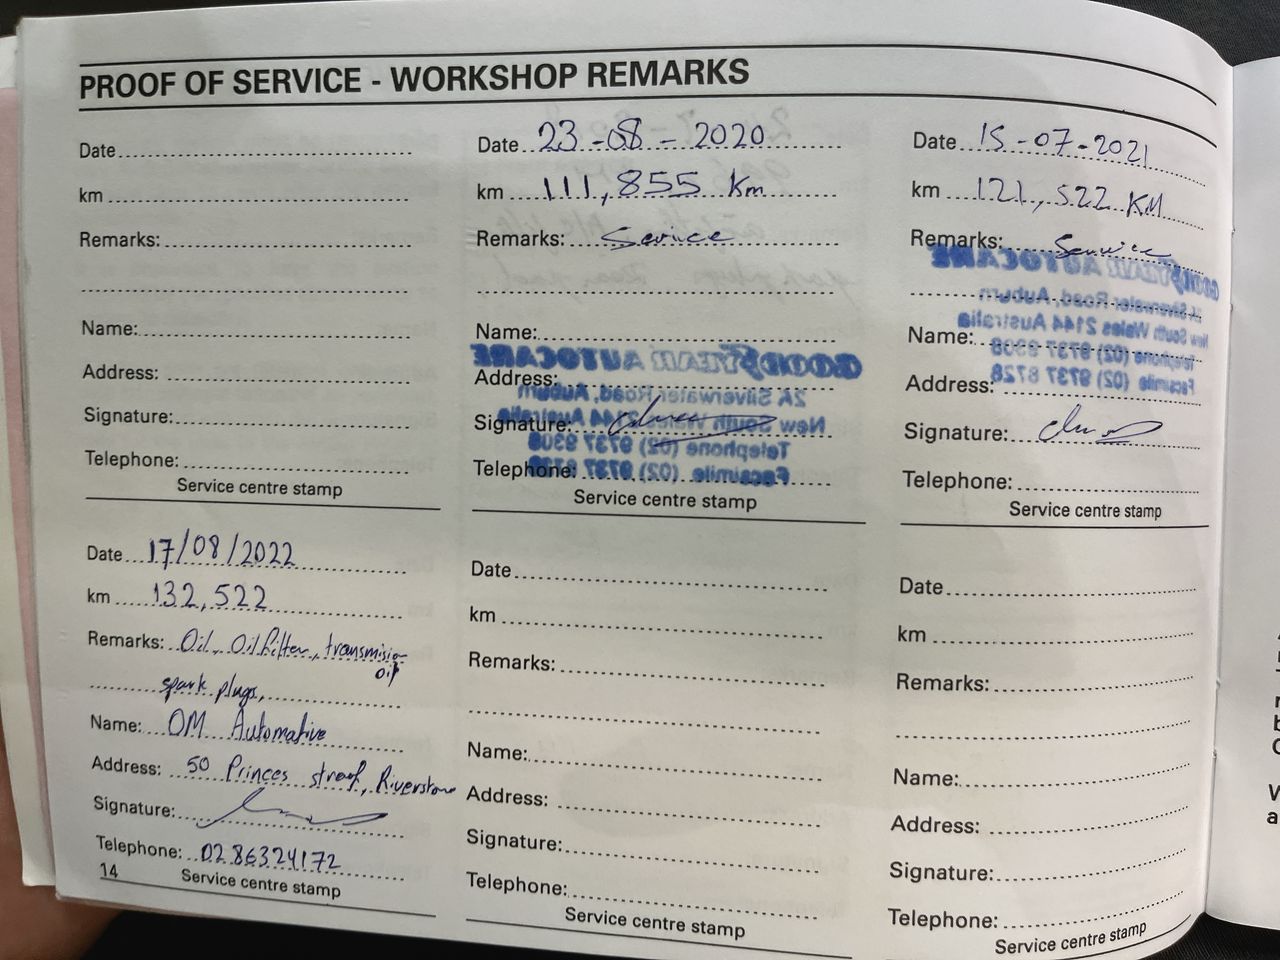 PROOF OF SERVICE - WORKSHOP REMARKS
Date
km
Remarks:
Name:
Address:
Signature:
Telephone:
Service centre stamp
Date 23-08-2020
km 111,855 Km
Remarks: Service
Name:
GOODYEAR AUTOCARE
Address:
2A Silverwater Road, Auburn
Signature:
New South Wales 2144 Australia
Telephone (02) 8737 9308
Telephone:
Facsimile (02) 8737 8728
Service centre stamp
Date 15-07-2021
km 121,522 KM
Remarks: Service
GOODYEAR AUTOCARE
Silverwater Road, Auburn
New South Wales 2144 Australia
Name:
Telephone (02) 8737 9308
Address:
Facsimile (02) 8737 8728
Signature:
Telephone:
Service centre stamp
Date 17/08/2022
km 132,522
Remarks: Oil, Oil filter, transmision
oil
spark plugs,
Name: OM Automative
Address: 50 Princes street, Riverstone
Signature:
Telephone: 0286324172
14
Service centre stamp
Date
km
Remarks:
Name:
Address:
Signature:
Telephone:
Service centre stamp
Date
km
Remarks:
Name:
Address:
Signature:
Telephone:
Service centre stamp